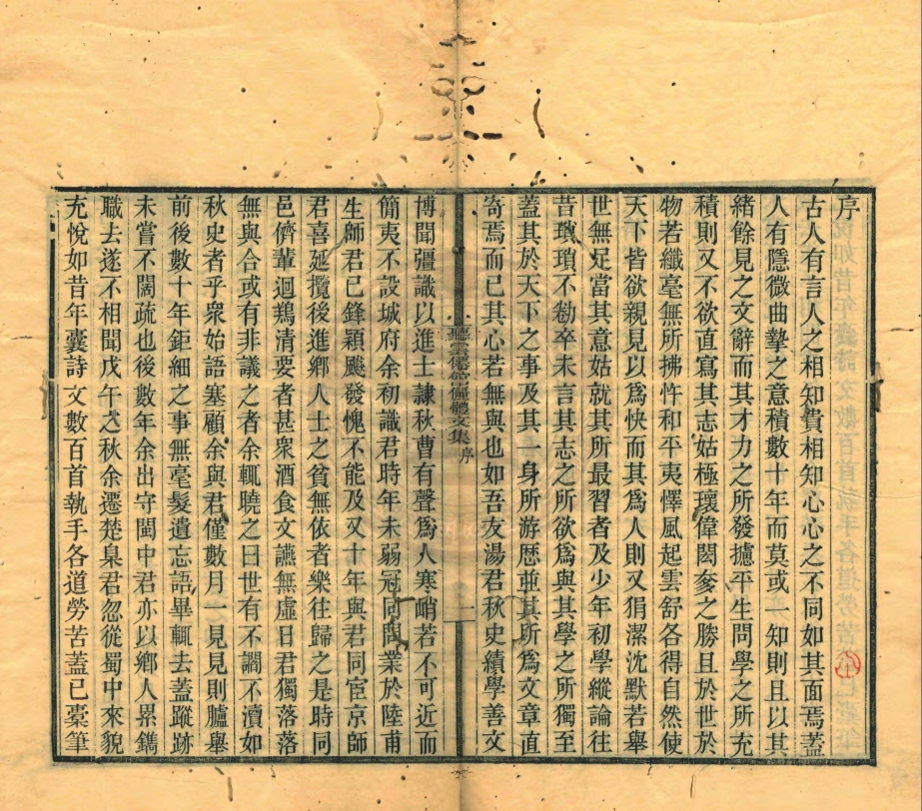 序
古人有言人之相知貴相知心心之不同如其面焉蓋
人有隱微曲摯之意積數十年而莫或一知則且以其
緒餘見之文辭而其才力之所發攄平生問學之所充
積則又不欲直寫其志姑極瓌偉閎奓之勝且於世於
物若纖毫無所拂忤和平夷懌風起雲舒各得自然使
天下皆欲親見以爲快而其爲人則又狷潔沈默若舉
世無足當其意姑就其所最習者及少年初學縱論往
昔瑣瑣不勌卒未言其志之所欲爲與其學之所獨至
蓋其於天下之事及其一身所游歴並其所爲文章直
寄焉而已其心若無與也如吾友湯君秋史績學善文
聽雲僊館儷體文集
序
一
博聞彊識以進士隸秋曹有聲爲人寒峭若不可近而
簡夷不設城府余初識君時年未弱冠同問業於陸甫
生師君已鋒穎飈發愧不能及又十年與君同宦京師
君喜延攬後進鄉人士之貧無依者樂往歸之是時同
邑儕輩迴鶈清要者甚衆酒食文讌無虛日君獨落落
無與合或有非議之者余輒曉之曰世有不讕不瀆如
秋史者乎衆始語塞顧余與君僅數月一見見則臚舉
前後數十年鉅細之事無毫髮遺忘語畢輒去蓋蹤跡
未嘗不闊疏也後數年余出守閩中君亦以鄉人累鐫
職去遂不相聞戊午之秋余遷楚臬君忽從蜀中來貌
充悅如昔年囊詩文數百首執手各道勞苦蓋已橐筆